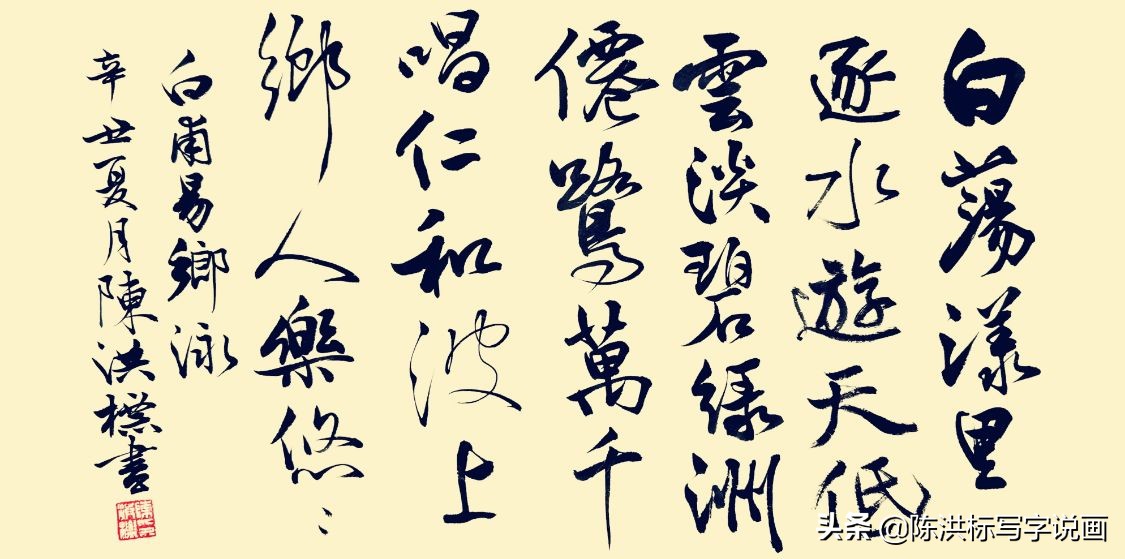 白蕩漾里
逐水遊天低
雲淡碧綠洲
僊鷺萬千
唱仁和波上
鄉人樂悠〻
白甫易鄉泳
辛丑夏月陳洪標書
头条 @陈洪标写字说画